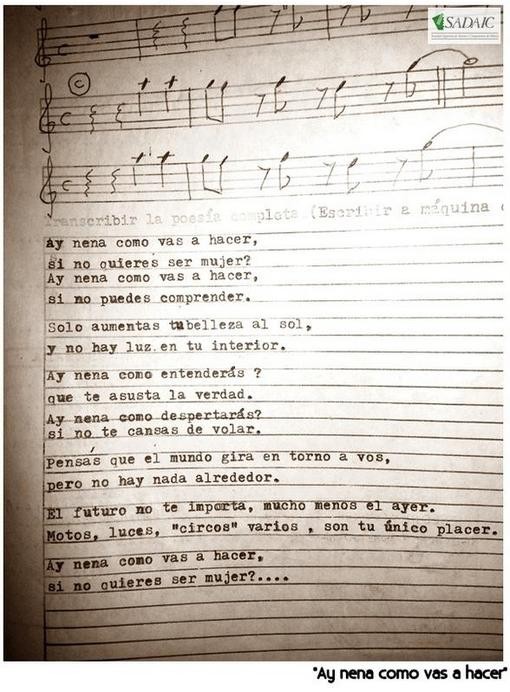 SADAIC
C
Transcribir la poesía completa (Escribir a máquina
Ay nena como vas a hacer,
si no quieres ser mujer?
Ay nena como vas a hacer,
si no puedes comprender.
Solo aumentas tubelleza al sol,
y no hay luz en tu interior.
Ay nena como entenderás ?
que te asusta la verdad.
Ay nena como despertarás?
si no te cansas de volar.
Pensás que el mundo gira en torno a vos,
pero no hay nada alrededor.
El futuro no te importa, mucho menos el ayer.
Motos, luces, "circos" varios , son tu único placer.
Ay nena como vas a hacer,
si no quieres ser mujer?....
"Ay nena como vas a hacer"